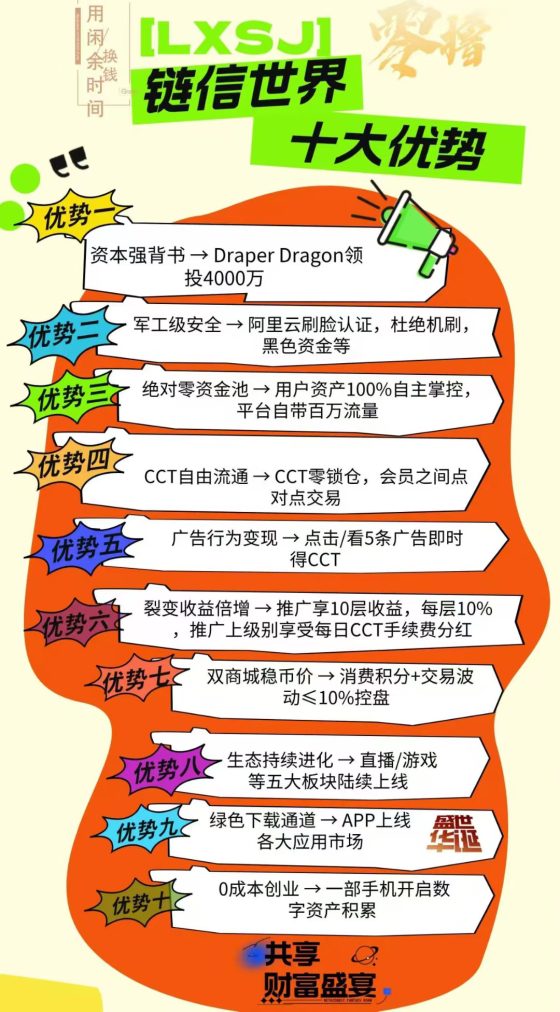 用闲余时间
换钱
[LXSJ]
零撸
链信世界
十大优势
优势一
资本强背书 → Draper Dragon领
投4000万
优势二
军工级安全 → 阿里云刷脸认证，杜绝机刷，
黑色资金等
优势三
绝对零资金池 → 用户资产100%自主掌控，
平台自带百万流量
优势四
CCT自由流通 → CCT零锁仓，会员之间点
对点交易
优势五
广告行为变现 → 点击/看5条广告即时
得CCT
优势六
裂变收益倍增 → 推广享10层收益，每层10%
，推广上级别享受每日CCT手续费分红
优势七
双商城稳币价 → 消费积分+交易波
动≤10%控盘
优势八
生态持续进化 → 直播/游戏
等五大板块陆续上线
优势九
绿色下载通道 → APP上线
各大应用市场
盛世
华诞
优势十
0成本创业 → 一部手机开启数
字资产积累
共享
财富盛宴